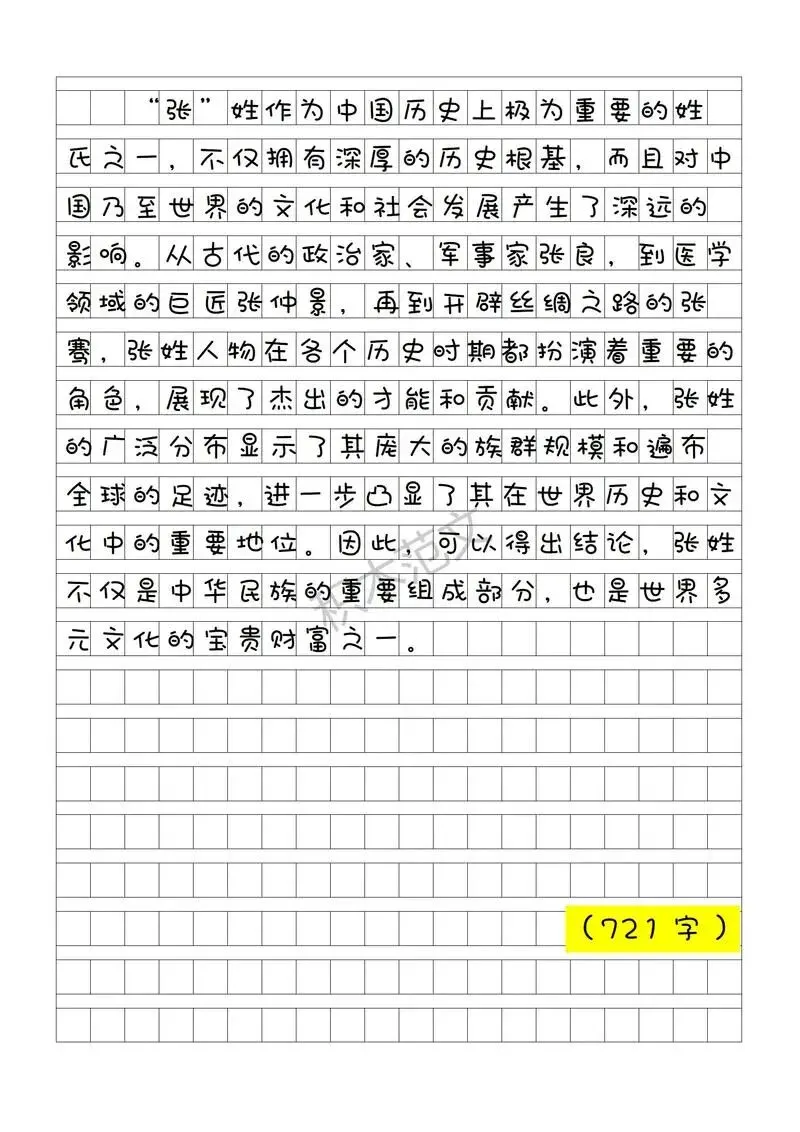 “张”姓作为中国历史上极为重要的姓
氏之一，不仅拥有深厚的历史根基，而且对中
国乃至世界的文化和社会发展产生了深远的
影响。从古代的政治家、军事家张良，到医学
领域的巨匠张仲景，再到开辟丝绸之路的张
骞，张姓人物在各个历史时期都扮演着重要的
角色，展现了杰出的才能和贡献。此外，张姓
的广泛分布显示了其庞大的族群规模和遍布
全球的足迹，进一步凸显了其在世界历史和文
化中的重要地位。因此，可以得出结论，张姓
不仅是中华民族的重要组成部分，也是世界多
元文化的宝贵财富之一。
积木范文
（721字）